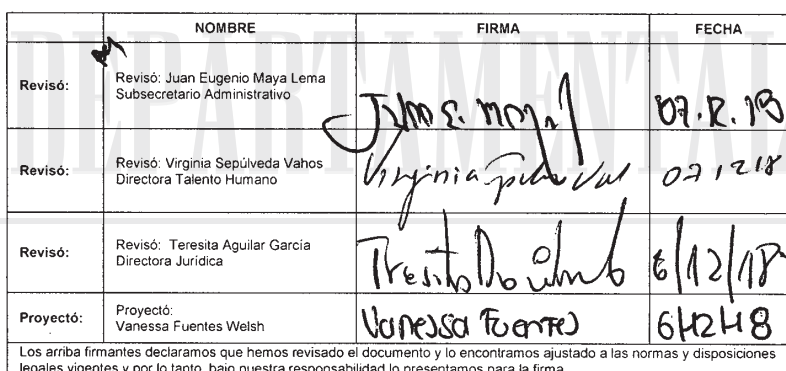 DEPARTAMENTAL
NOMBRE FIRMA FECHA
Revisó: Revisó: Juan Eugenio Maya Lema
Subsecretario Administrativo
07.12.18
Revisó: Revisó: Virginia Sepúlveda Vahos
Directora Talento Humano
Virginia 071218
Revisó: Revisó: Teresita Aguilar García
Directora Jurídica
6/12/18
Proyectó: Proyectó:
Vanessa Fuentes Welsh
Vanessa Fuentes 6/12/18
Los arriba firmantes declaramos que hemos revisado el documento y lo encontramos ajustado a las normas y disposiciones
legales vigentes y por lo tanto, bajo nuestra responsabilidad lo presentamos para la firma